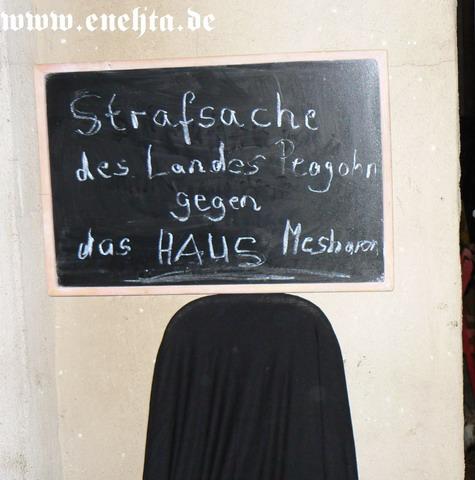 www.enehta.de
Strafsache
des Landes Peagohn
gegen
das HAUS Mesharon